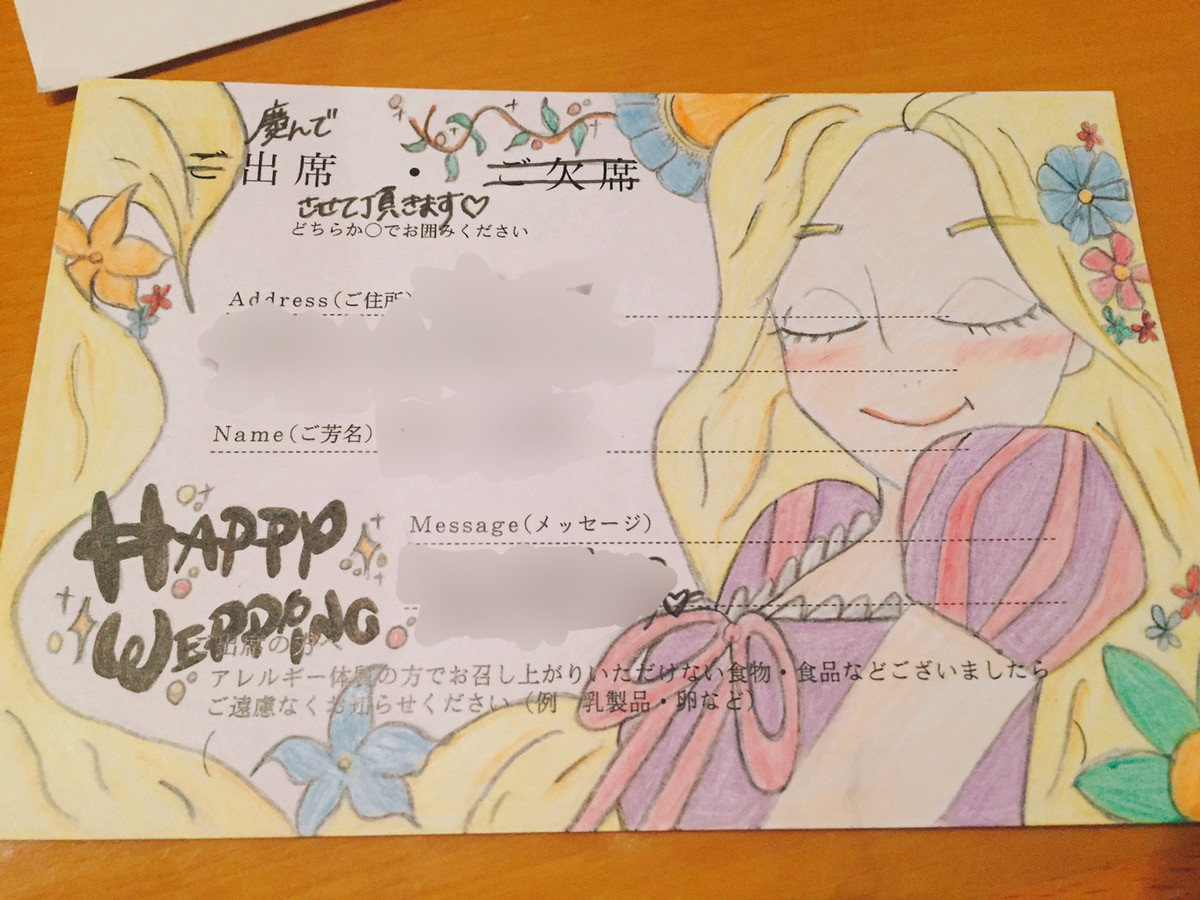 慶んで
ご出席 ・ ご欠席
させて頂きます♡
どちらか〇でお囲みください
Address(ご住所)
Name(ご芳名)
HAPPY
WEDDING
Message(メッセージ)
ご出席の方へ
アレルギー体質の方でお召し上がりいただけない食物・食品などございましたら
ご遠慮なくお知らせください（例 乳製品・卵など）